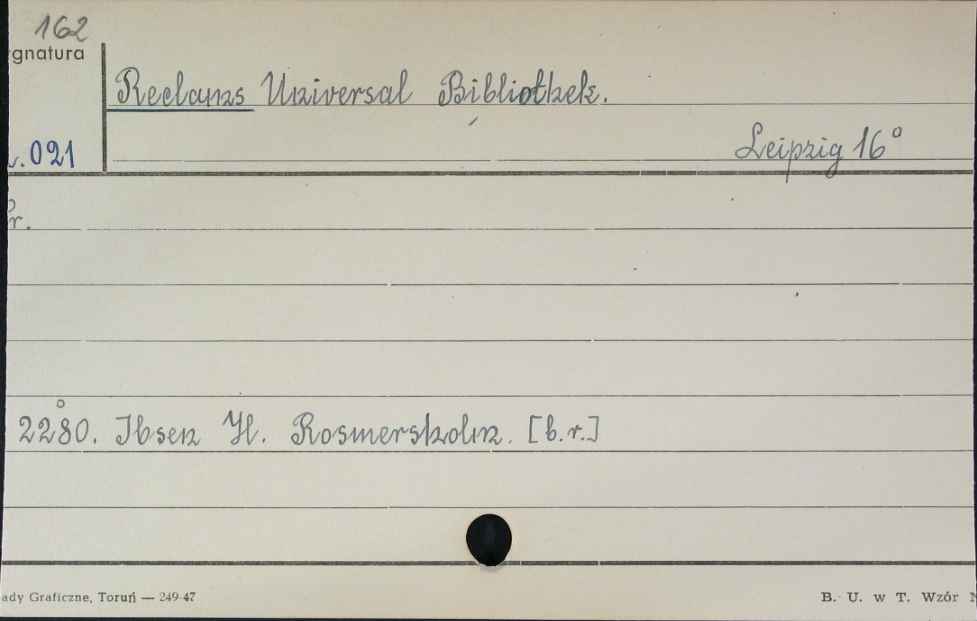 162
gnatura
Reclams Universal Bibliothek.
. 021
Leipzig 16°
r.
2280. Ibsen H. Rosmersholm. [b.r.]
ady Graficzne, Toruń — 249-47
B. U. w T. Wzór